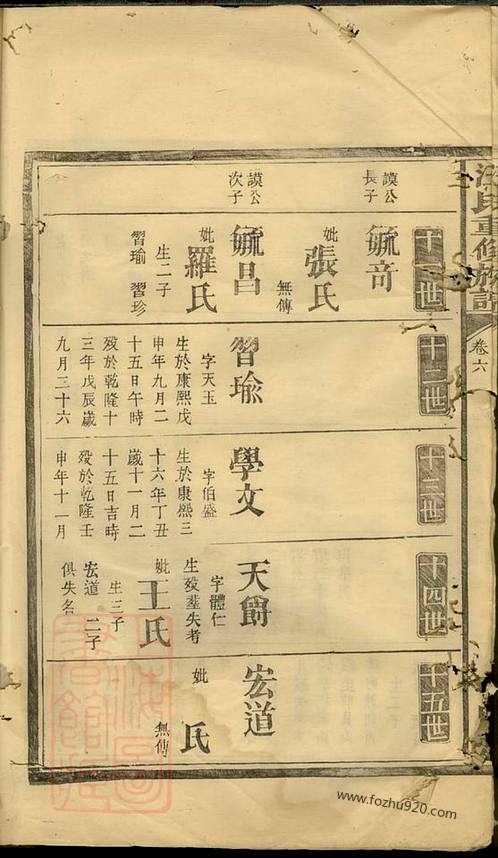 汪氏重修族譜
卷六
十一世
謨公
長子
毓奇
妣
張氏
無傳
謨公
次子
毓昌
妣
羅氏
生二子
習瑜 習珍
十二世
習瑜
字天玉
生於康熙戊
申年九月二
十五日午時
歿於乾隆十
三年戊辰歲
九月三十六
十三世
學文
字伯盛
生於康熙三
十六年丁丑
歲十一月二
十五日吉時
歿於乾隆壬
申年十一月
十四世
天爵
字體仁
生歿塟失考
妣
王氏
生三子
宏道 二子
俱失名
十五世
宏道
妣
氏
無傳
海國
書館
www.fozhu920.com